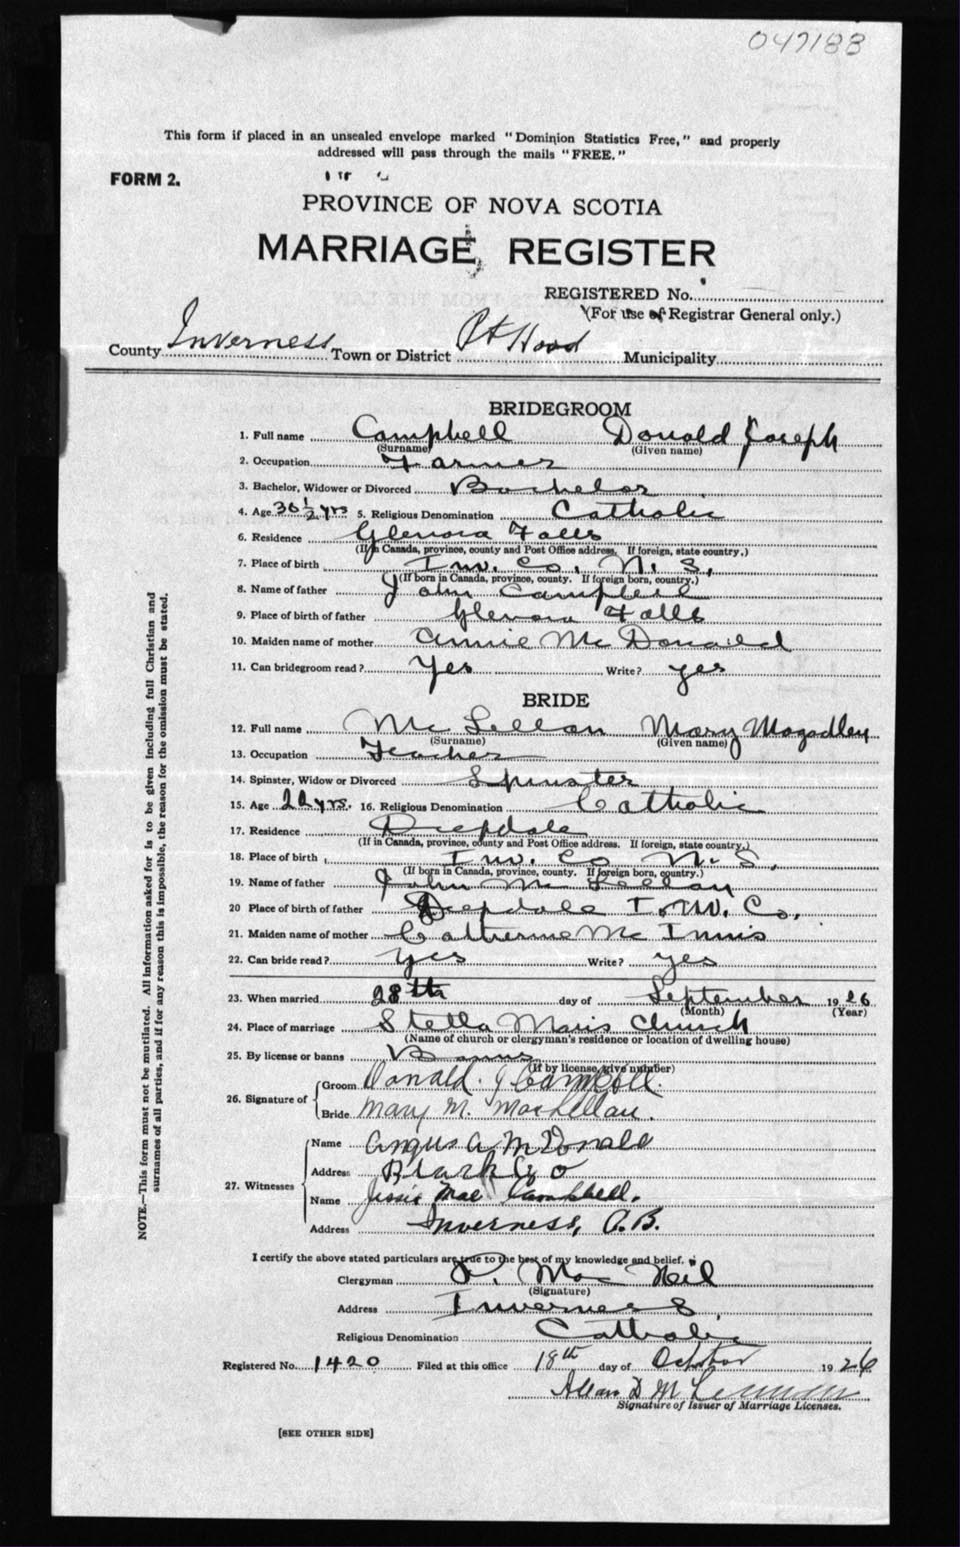 047183
This form if placed in an unsealed envelope marked "Dominion Statistics Free," and properly
addressed will pass through the mails "FREE."
FORM 2.
PROVINCE OF NOVA SCOTIA
MARRIAGE REGISTER
REGISTERED No.
(For use of Registrar General only.)
County Inverness Town or District Pt Hood Municipality
BRIDEGROOM
1. Full name Campbell Donald Joseph
(Surname) (Given name)
2. Occupation Farmer
3. Bachelor, Widower or Divorced Bachelor
4. Age 30½ yrs 5. Religious Denomination Catholic
6. Residence Glenora Falls
(If in Canada, province, county and Post Office address. If foreign, state country.)
7. Place of birth Inv. Co. N. S.
(If born in Canada, province, county. If foreign born, country.)
8. Name of father John Campbell
9. Place of birth of father Glenora Falls
10. Maiden name of mother Annie McDonald
11. Can bridegroom read? Yes Write? yes
BRIDE
12. Full name McLellan Mary Magadley
(Surname) (Given name)
13. Occupation Teacher
14. Spinster, Widow or Divorced Spinster
15. Age 22 yrs. 16. Religious Denomination Catholic
17. Residence Deepdale
(If in Canada, province, county and Post Office address. If foreign, state country.)
18. Place of birth Inv. Co N. S.
(If born in Canada, province, county. If foreign born, country.)
19. Name of father John McLellan
20 Place of birth of father Deepdale Inv. Co.
21. Maiden name of mother Catherine McInnis
22. Can bride read? yes Write? yes
23. When married 28th day of September 1926
(Month) (Year)
24. Place of marriage Stella Maris Church
(Name of church or clergyman's residence or location of dwelling house)
25. By license or banns Banns
(If by license, give number)
26. Signature of Groom Donald. J Campbell.
Bride Mary M. MacLellan.
27. Witnesses
Name Angus A McDonald
Address
Name Jessie Mae Campbell.
Address Inverness, C.B.
I certify the above stated particulars are true to the best of my knowledge and belief.
Clergyman MacNeil
(Signature)
Address Inverness
Religious Denomination Catholic
Registered No. 1420 Filed at this office 18th day of October 1926
Allan D
Signature of Issuer of Marriage Licenses.
[SEE OTHER SIDE]
NOTE.—This form must not be mutilated. All information asked for is to be given including full Christian and
surnames of all parties, and if for any reason this is impossible, the reason for the omission must be stated.